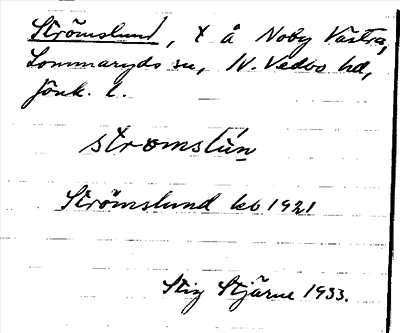 Strömslund, × å Noby Västra,
Lommaryds sn, N. Vedbo hd,
Jönk. l.
stromslún
Strömslund kb 1921
Stig Stjärne 1933.